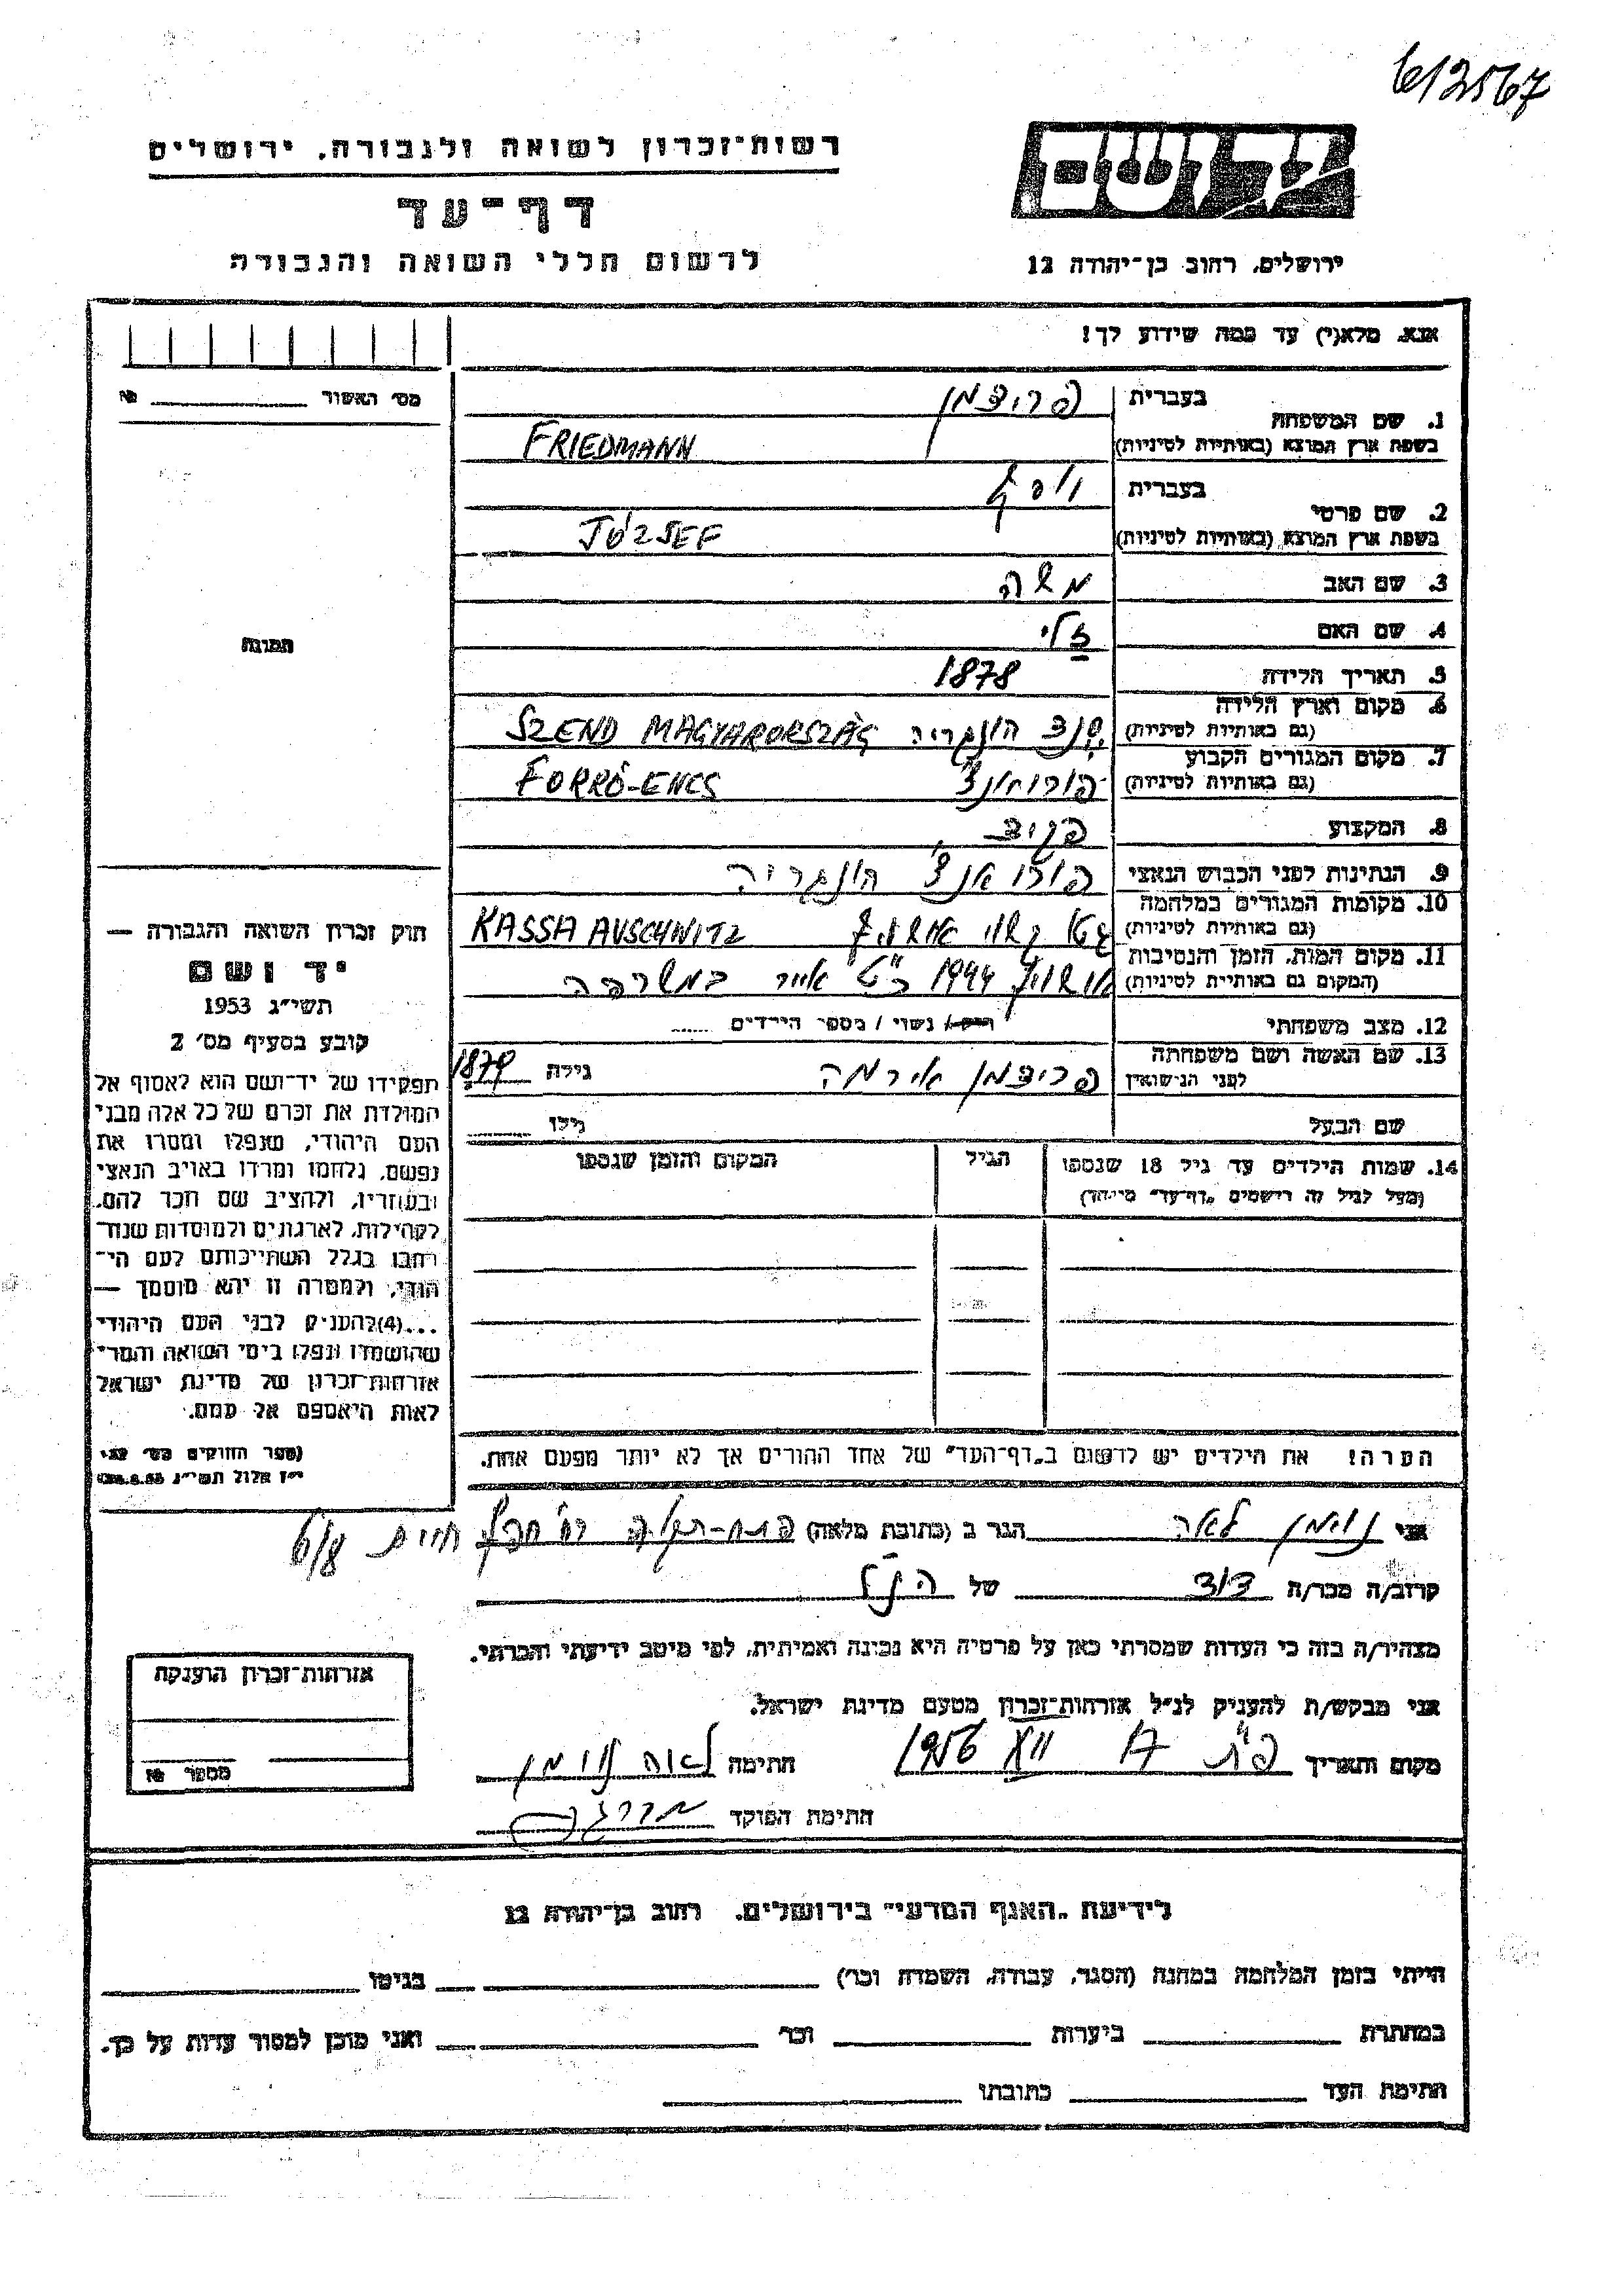 612567
רשות־זכרון לשואה ולגבורה. ירושלים
דף־עד
לרשום חללי השואה והגבורה
יד ושם
ירושלים, רחוב בן־יהודה 12
אנא, מלא(י) עד כמה שידוע לך!
מס׳ האשור № 
1. שם המשפחה
בעברית פרידמן
בשפת ארץ המוצא (באותיות לטיניות) FRIEDMANN
2. שם פרטי
בעברית יוסף
בשפת ארץ המוצא (באותיות לטיניות) JÓZSEF
3. שם האב משה
4. שם האם
5. תאריך הלידה 1878
6. מקום וארץ הלידה
(גם באותיות לטיניות) סנד הונגריה SZEND MAGYARORSZÁG
7. מקום המגורים הקבוע
(גם באותיות לטיניות) FORRÓ-ENCS
8. המקצוע
9. הנתינות לפני הכבוש הנאצי הונגריה
10. מקומות המגורים במלחמה
(גם באותיות לטיניות) KASSA AUSCHWITZ
11. מקום המות, הזמן והנסיבות
(המקום גם באותיות לטיניות) 1944 אייר במשרפה
12. מצב משפחתי רווק / נשוי / מספר הילדים
13. שם האשה ושם משפחתה
לפני הנישואין פרידמן אירמה גילה
שם הבעל גילו
14. שמות הילדים עד גיל 18 שנספו הגיל המקום והזמן שנספו
(מעל לגיל זה רישמים „דף־עד״ מיוחד)
הערה! את הילדים יש לרשום ב„דף־העד״ של אחד ההורים אך לא יותר מפעם אחת.
תמונה
חוק זכרון השואה והגבורה —
יד ושם
תשי״ג 1953
קובע בסעיף מס׳ 2
תפקידו של יד־ושם הוא לאסוף אל
המולדת את זכרם של כל אלה מבני
העם היהודי, שנפלו ומסרו את
נפשם, נלחמו ומרדו באויב הנאצי
ובעוזריו, ולהציב שם וזכר להם,
לקהילות, לארגונים ולמוסדות שנח־
רבו בגלל השתייכותם לעם הי־
הודי, ולמטרה זו יהא מוסמך —
...(4)להעניק לבני העם היהודי
שהושמדו ונפלו בימי השואה והמרי
אזרחות־זכרון של מדינת ישראל
לאות היאספם אל עמם.
(ספר החוקים מס׳ 132
י״ז אלול תשי״ג 28.8.53)
אני נוימן לאה הגר ב (כתובת מלאה) פתח-תקוה 6/8
קרוב/ה מכר/ה של הנ״ל
מצהיר/ה בזה כי העדות שמסרתי כאן על פרטיה היא נכונה ואמיתית, לפי מיטב ידיעתי והכרתי.
אני מבקש/ת להעניק לנ״ל אזרחות־זכרון מטעם מדינת ישראל.
מקום ותאריך פ״ת 17 VII 1956 חתימה לאה נוימן
חתימת הפוקד
אזרחות־זכרון הוענקה
מספר №
לידיעת „האגף המדעי״ בירושלים. רחוב בן־יהודה 12
הייתי בזמן המלחמה במחנה (הסגר, עבודה, השמדה וכו׳) בגיטו
במחתרת ביערות וכו׳ ואני מוכן למסור עדות על כך.
חתימת העד כתובתו